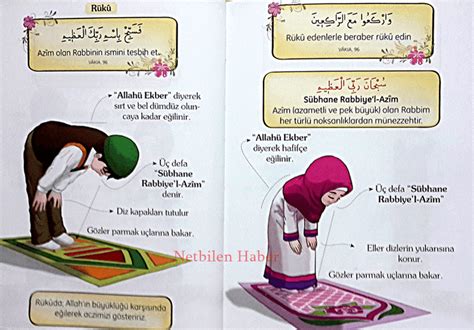 Rükû
فَسَبِّحْ بِاسْمِ رَبِّكَ الْعَظِيمِ
Azîm olan Rabbinin ismini tesbih et.
VÂKIA, 96
"Allahü Ekber" diyerek
sırt ve bel dümdüz olun-
caya kadar eğilinir.
Üç defa
"Sübhane
Rabbiye'l-Azîm"
denir.
Diz kapakları tutulur
Gözler parmak uçlarına bakar.
Rükûda; Allah'ın büyüklüğü karşısında
eğilerek aczimizi gösteririz.
وَارْكَعُوا مَعَ الرَّاكِعِينَ
Rükû edenlerle beraber rükû edin
VÂKIA, 96
سُبْحَانَ رَبِّيَ الْعَظِيمِ
Sübhane Rabbiye'l-Azîm
Azîm (azametli ve pek büyük) olan Rabbim
her türlü noksanlıklardan münezzehtir.
"Allahü Ekber"
diyerek hafifçe
eğilinir.
Üç defa "Sübhane
Rabbiye'l-Azîm"
Eller dizlerin yukarısına
konur.
Gözler parmak uçlarına bakar.
Netbilen Haber